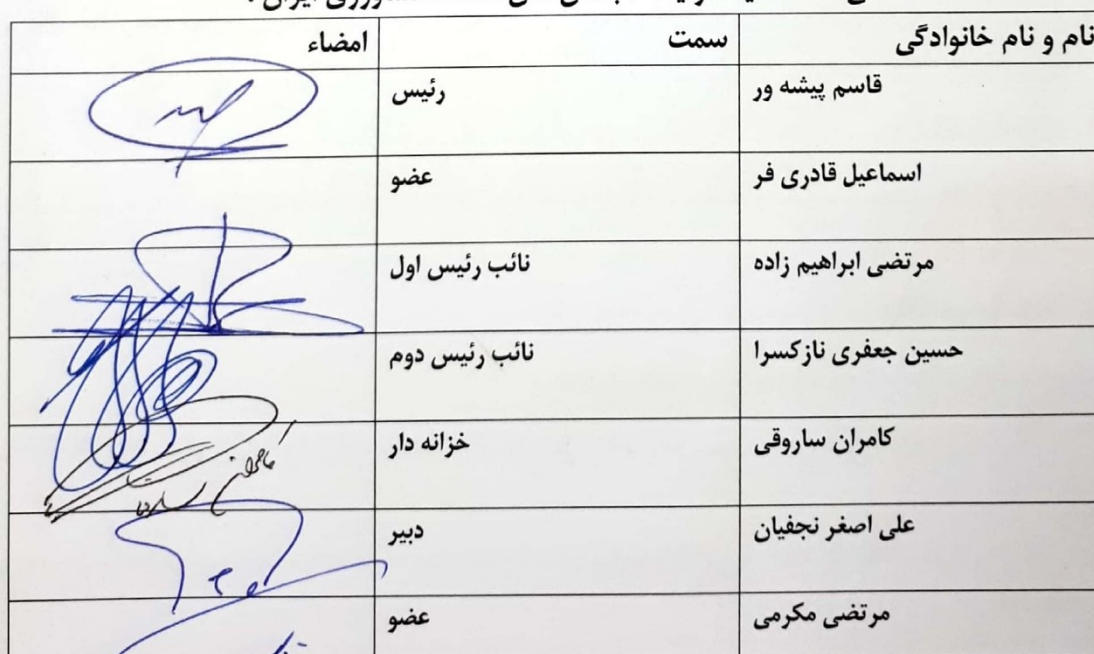 نام و نام خانوادگی سمت امضاء
قاسم پیشه ور رئیس
اسماعیل قادری فر عضو
مرتضی ابراهیم زاده نائب رئیس اول
حسین جعفری نازکسرا نائب رئیس دوم
کامران ساروقی خزانه دار
علی اصغر نجفیان دبیر
مرتضی مکرمی عضو